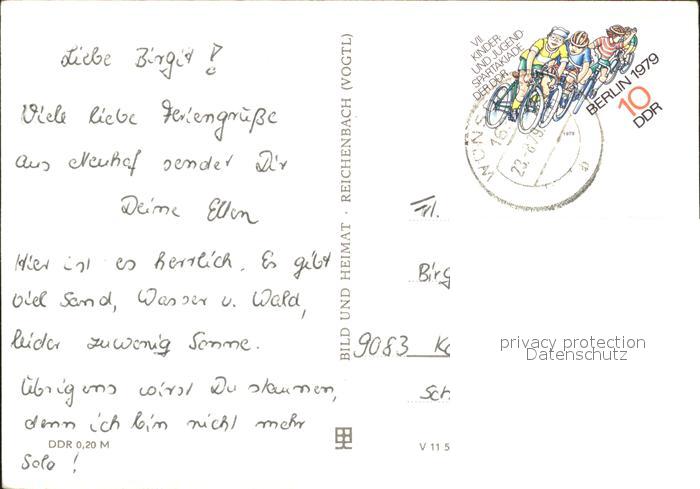 Liebe Birgit !
Viele liebe Feriengrüße
aus Neuhof sendet Dir
Deine Ellen
Hier ist es herrlich. Es gibt
viel Sand, Wasser u. Wald,
leider zuwenig Sonne.
Übrigens wirst Du staunen,
denn ich bin nicht mehr
Solo !
DDR 0,20 M
BILD UND HEIMAT · REICHENBACH (VOGTL)
V 11 5
VII.
KINDER-
UND JUGEND-
SPARTAKIADE
DER DDR
BERLIN 1979
10
DDR
23.-8.79
Frl.
Birg
9083 Ka
Sch
privacy protection
Datenschutz